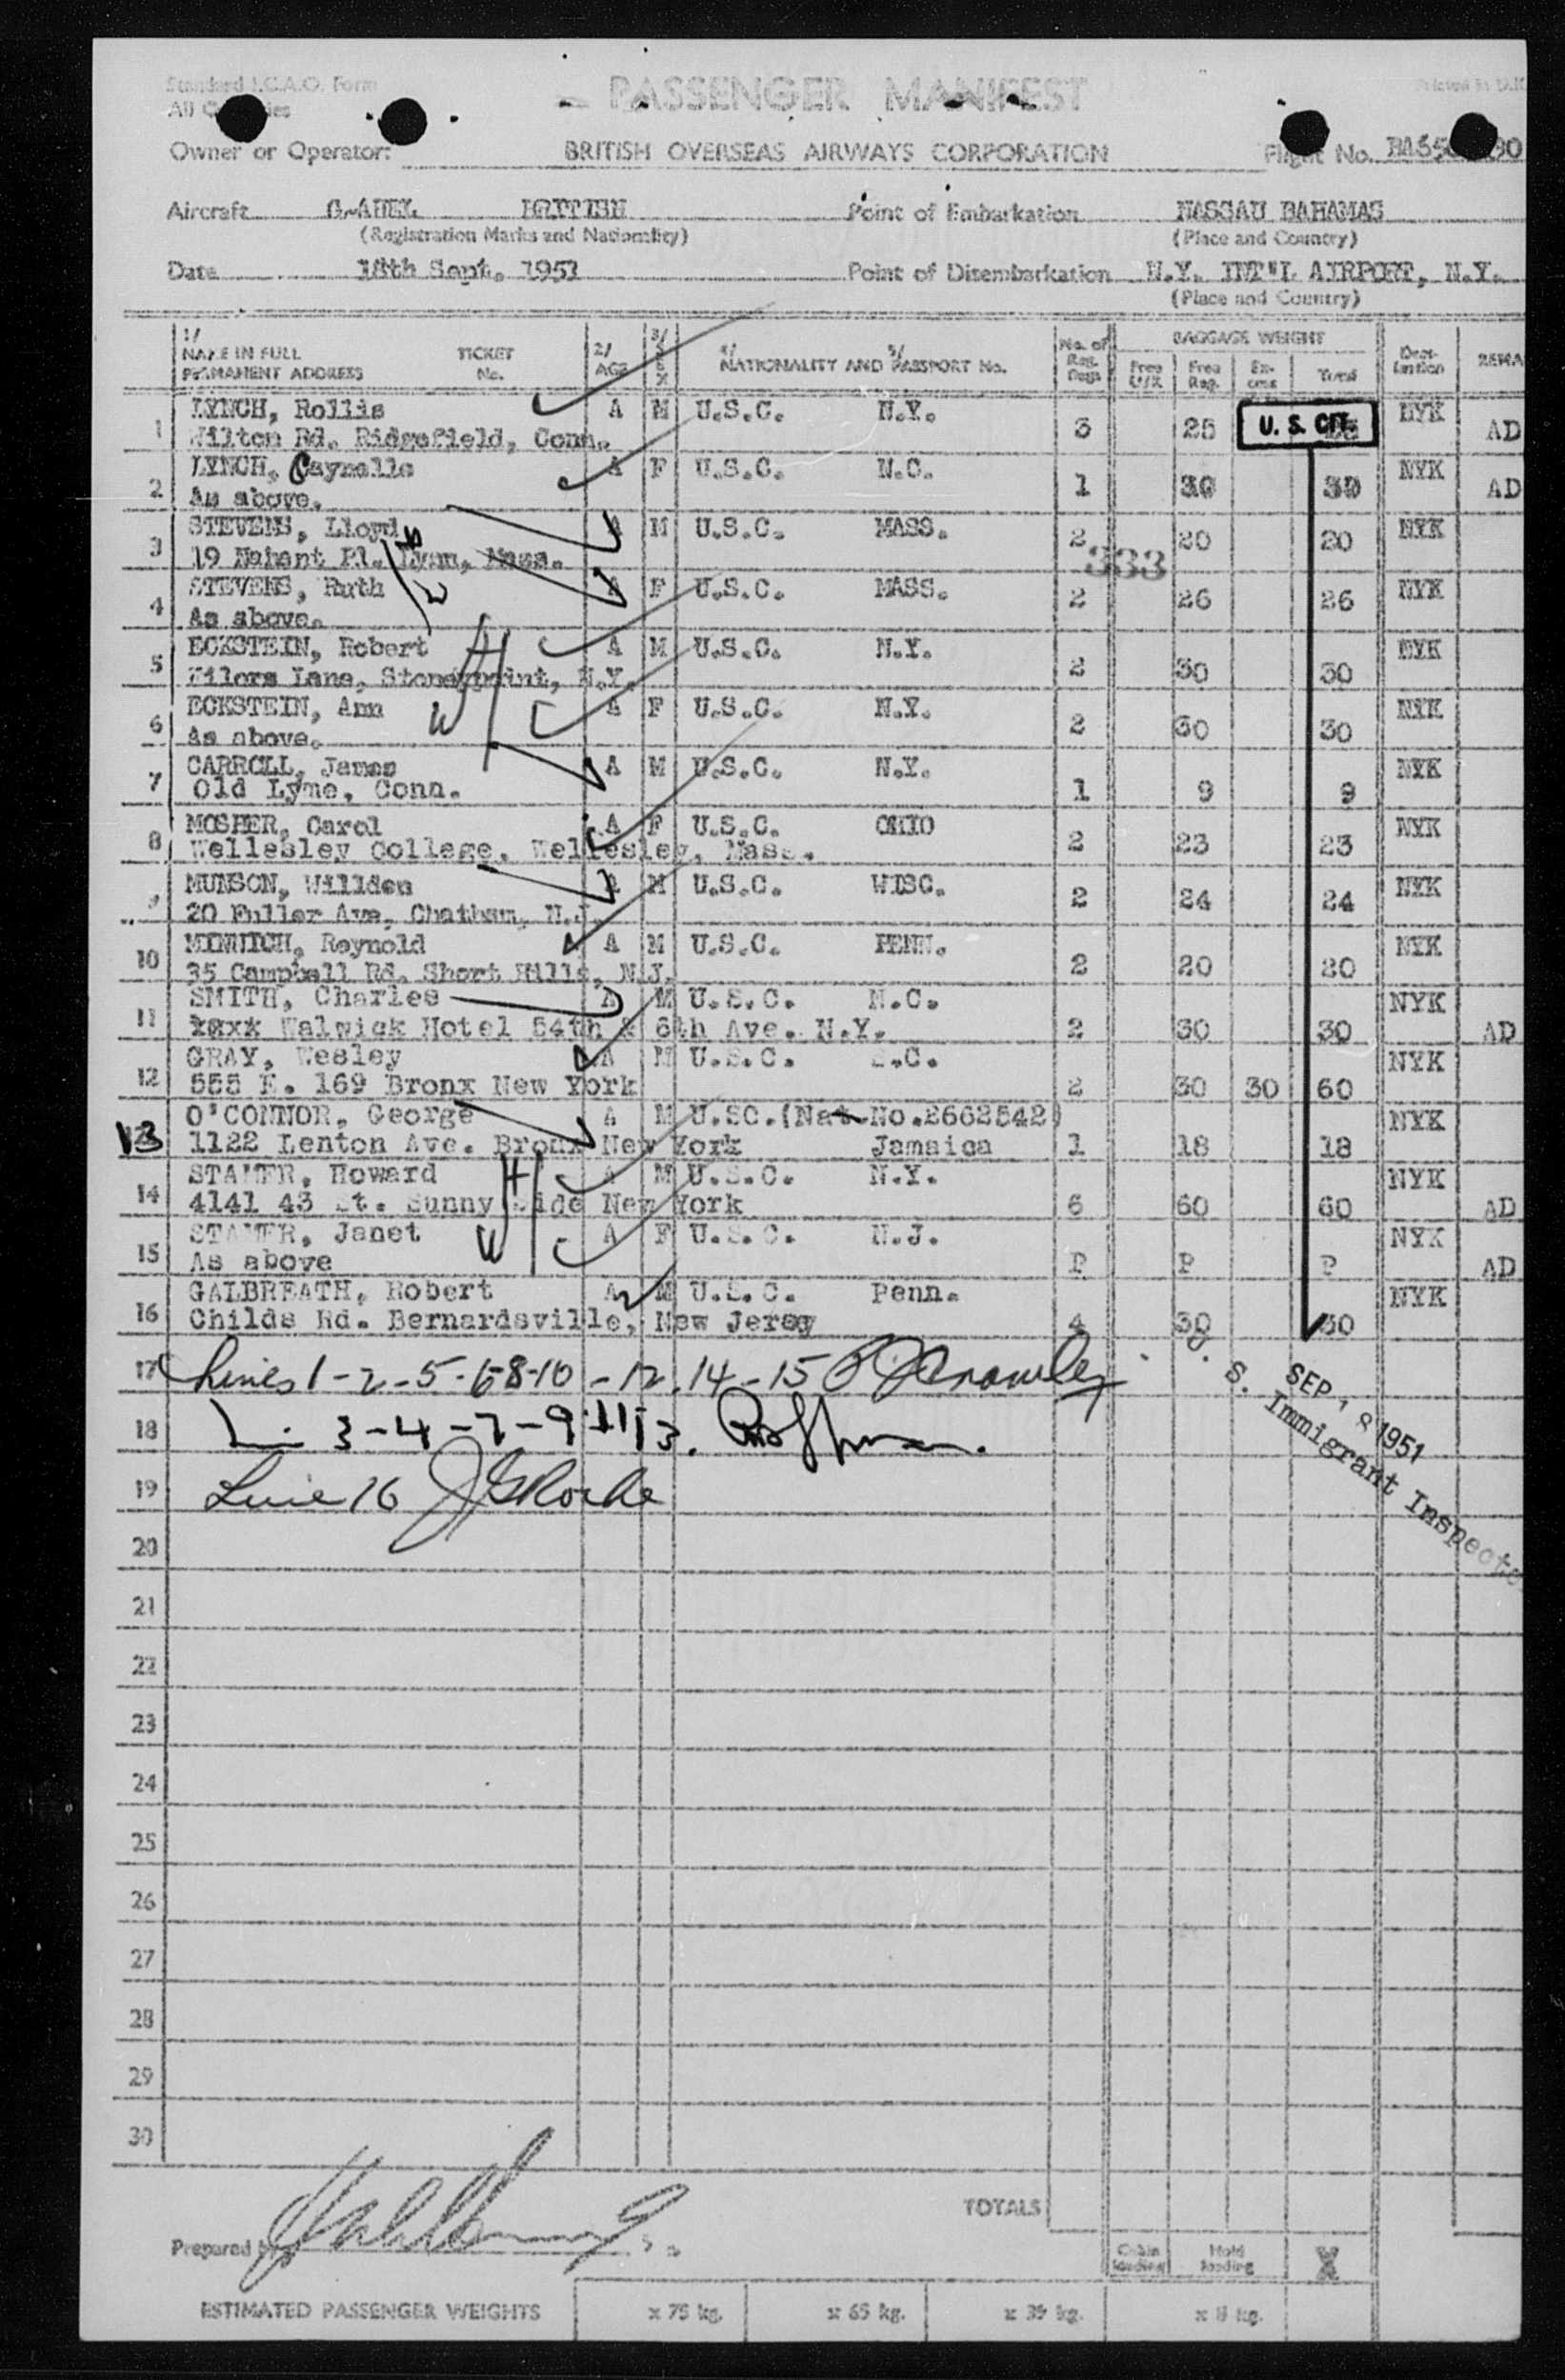 Standard I.C.A.O. Form
PASSENGER MANIFEST
All
Owner or Operator: BRITISH OVERSEAS AIRWAYS CORPORATION Flight No.
Aircraft BRITISH Point of Embarkation NASSAU BAHAMAS
(Registration Marks and Nationality) (Place and Country)
Date 18th Sept. 1951 Point of Disembarkation N.Y. INT'L AIRPORT, N.Y.
(Place and Country)
1/ NAME IN FULL TICKET 2/ 3/ 4/ 5/ No. of BAGGAGE WEIGHT Dest- REMA
PERMANENT ADDRESS No. AGE SEX NATIONALITY AND PASSPORT No. Free Ex- Total ination
1 LYNCH, Rollis A M U.S.C. N.Y. 3 25 U. S. CIT. NYK AD
Wilton Rd. Ridgefield, Conn.
2 LYNCH, Caynelle A F U.S.C. N.C. 1 30 30 NYK AD
As above.
3 STEVENS, Lloyd A M U.S.C. MASS. 2 20 20 NYK
19 Nahant Pl. Lynn, Mass.
333
4 STEVENS, Ruth A F U.S.C. MASS. 2 26 26 NYK
As above.
H
W
5 ECKSTEIN, Robert A M U.S.C. N.Y. 2 30 30 NYK
Lane, Stoneypoint, N.Y.
6 ECKSTEIN, Ann A F U.S.C. N.Y. 2 30 30 NYK
As above.
H
W
7 CARROLL, James A M U.S.C. N.Y. 1 9 9 NYK
Old Lyme, Conn.
8 MOSHER, Carol A F U.S.C. OHIO 2 23 23 NYK
Wellesley College, Wellesley, Mass.
9 MUNSON, Willden A M U.S.C. WISC. 2 24 24 NYK
20 Fuller Ave, Chatham, N.J.
10 Reynold A M U.S.C. PENN. 2 20 20 NYK
35 Campbell Rd. Short Hills, N.J.
11 SMITH, Charles A M U.S.C. N.C. 2 30 30 NYK AD
Walwick Hotel 54th & 6th Ave. N.Y.
12 GRAY, Wesley A M U.S.C. .C. 2 30 30 60 NYK
555 E. 169 Bronx New York
13 O'CONNOR, George A M U.SC.(Nat.No.2662542) NYK
1122 Lenton Ave. Bronx New York Jamaica 1 18 18
14 STAMER, Howard A M U.S.C. N.Y. 6 60 60 NYK AD
4141 43 St. Sunny Side New York
15 STAMER, Janet A F U.S.C. N.J. P P P NYK AD
As above
H
W
16 GALBREATH, Robert A M U.S.C. Penn. 4 30 30 NYK
Childs Rd. Bernardsville, New Jersey
17 Lines 1-2-5-6-8-10-12.14-15
18 3-4-7-9-11-13.
19 Line 16 J G Roche
U. S. Immigrant Inspector
SEP 18 1951
20
21
22
23
24
25
26
27
28
29
30
TOTALS
Prepared by
Cabin loading Hold loading X
ESTIMATED PASSENGER WEIGHTS x 75 kg. x 65 kg. x 39 kg. x 8 kg.